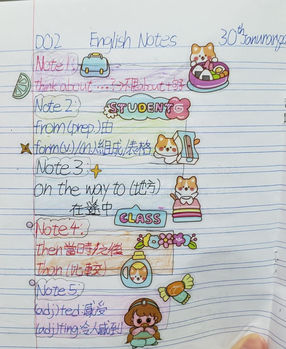 D02 English Notes 30th January
Note 1:
think about
STUDENT
Note 2:
from (prep.) 由
form (v)/(n) 組成/表格
Note 3:
on the way to (地方)
在途中
CLASS
Note 4:
Then 當時/之後
Than (比較)
Note 5:
(adj)ted 感受
(adj)ting 令人感到